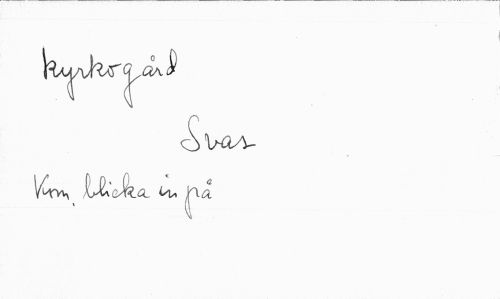 kyrkogård
Svas
Kom, blicka in på